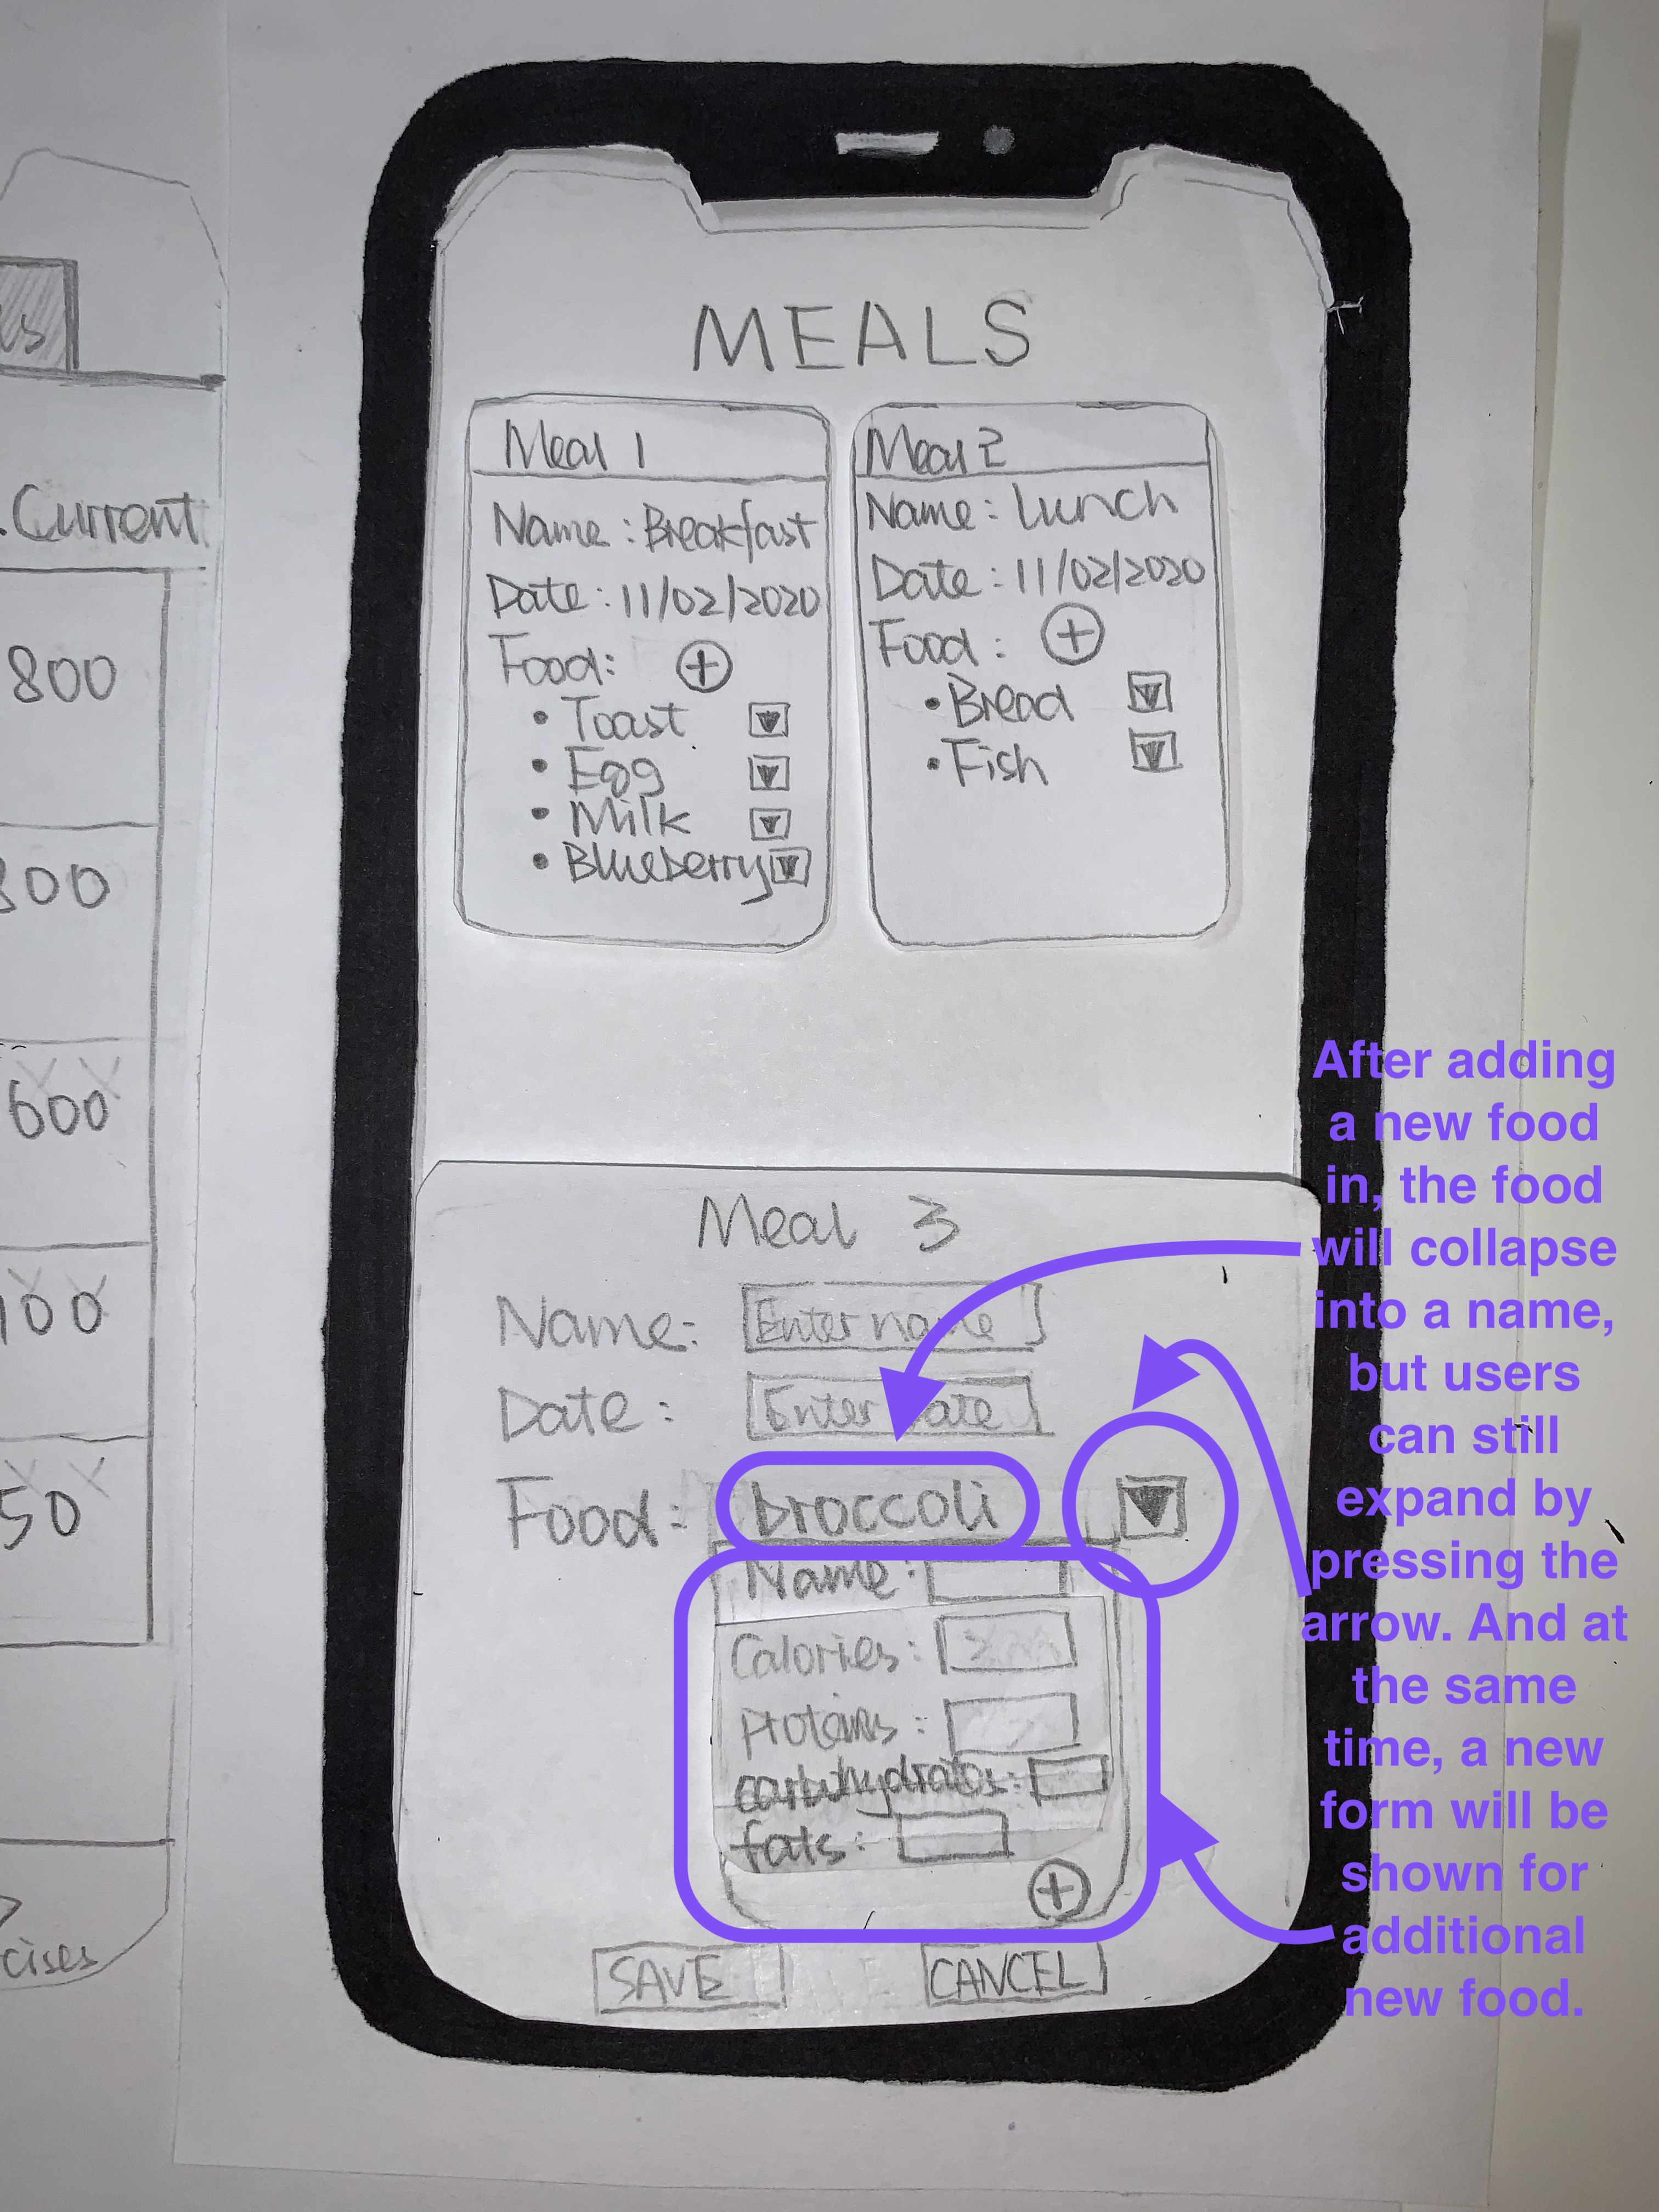 MEALS
Meal 1
Name : Breakfast
Date : 11/02/2020
Food: +
• Toast
• Egg
• Milk
• Blueberry
Meal 2
Name : Lunch
Date : 11/02/2020
Food : +
• Bread
• Fish
Meal 3
Name: Enter name
Date : Enter Date
Food: broccoli
Name:
Calories :
Proteins :
carbohydrates:
fats:
+
SAVE CANCEL
After adding
a new food
in, the food
will collapse
into a name,
but users
can still
expand by
pressing the
arrow. And at
the same
time, a new
form will be
shown for
additional
new food.
. Current
800
600
50
cises